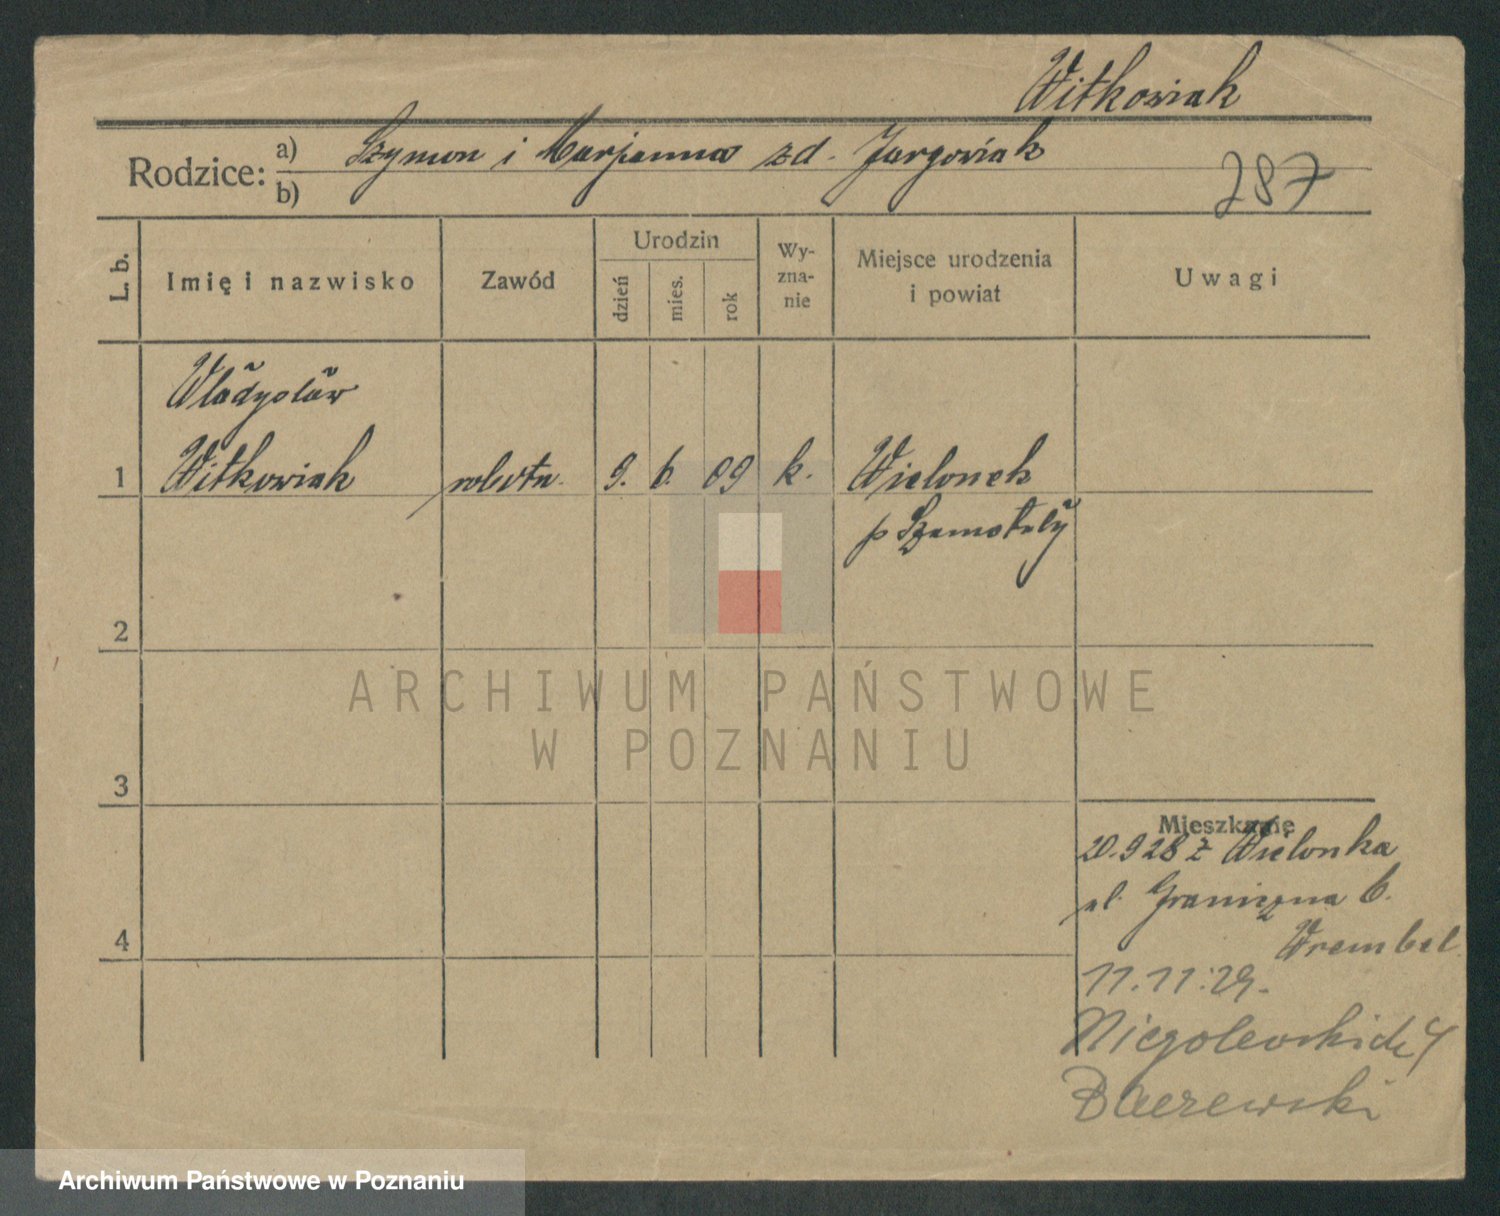 Witkowiak
Rodzice: a) Szymon i Marjanna zd. Jurgowiak
b)
287
L. b.
Imię i nazwisko
Zawód
Urodzin
dzień
mies.
rok
Wy-
zna-
nie
Miejsce urodzenia
i powiat
Uwagi
Władysław
1 Witkowiak robotn. 9. 6. 09 k. Wielonek
p Szamotuły
2
3
4
Mieszkanie
20.9 28 z Wielonka
ul. Graniczna 6.
Wrembel
11.11.29.
Niegolewskich
ARCHIWUM PAŃSTWOWE
W POZNANIU
Archiwum Państwowe w Poznaniu